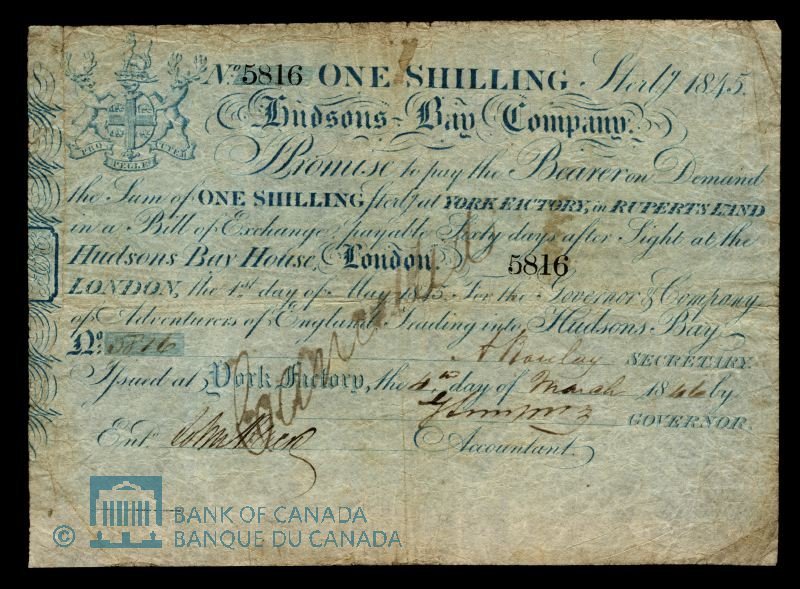 No 5816 ONE SHILLING Sterlg 1845.
Hudsons Bay Company.
PRO PELLE CUTEM
Promise to pay the Bearer on Demand
the Sum of ONE SHILLING Sterlg at YORK FACTORY, in RUPERT'S LAND
in a Bill of Exchange payable Sixty days after Sight at the
Hudsons Bay House, London. 5816
LONDON, the 1st day of May 1845. For the Governor & Company
of Adventurers of England Trading into Hudsons Bay
No. 5816
A Barclay SECRETARY
Issued at York Factory, the 4th day of March 1846 by
G Simpson GOVERNOR.
Entd.
Accountant.
Cancelled
© BANK OF CANADA
BANQUE DU CANADA